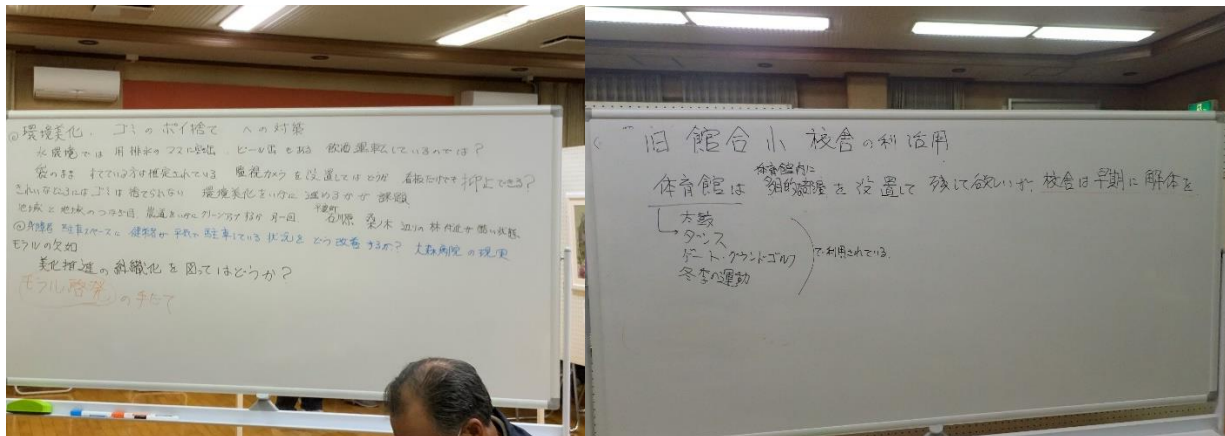 ◎環境美化・ゴミのポイ捨て への対策
水環境では 用排水のつまに 缶 ビール缶もある 飲酒運転しているのでは?
袋のまま すてている方は想定されている 監視カメラを設置してはどうか 看板だけでは抑止できる?
きれいなところにはゴミは捨てられない 環境美化をいかに進めるかが課題
地域と地域のつなぎ目、農道をいかにクリーンアップするか 月一回 石川原 桑ノ木 辺りの林 付近が酷い状態、
◎障害者 駐車スペースに 健常者が平気で駐車している状況をどう改善するか? 大森病院の現実
モラルの欠如
美化推進の組織化を図ってはどうか?
モラル啓発の手だて
旧館合小校舎の利活用
体育館内に
体育館は 多目的部屋を設置して残して欲しいが、校舎は早期に解体を
太鼓
ダンス
ゲート・グランドゴルフ
冬季の運動
で利用されている。